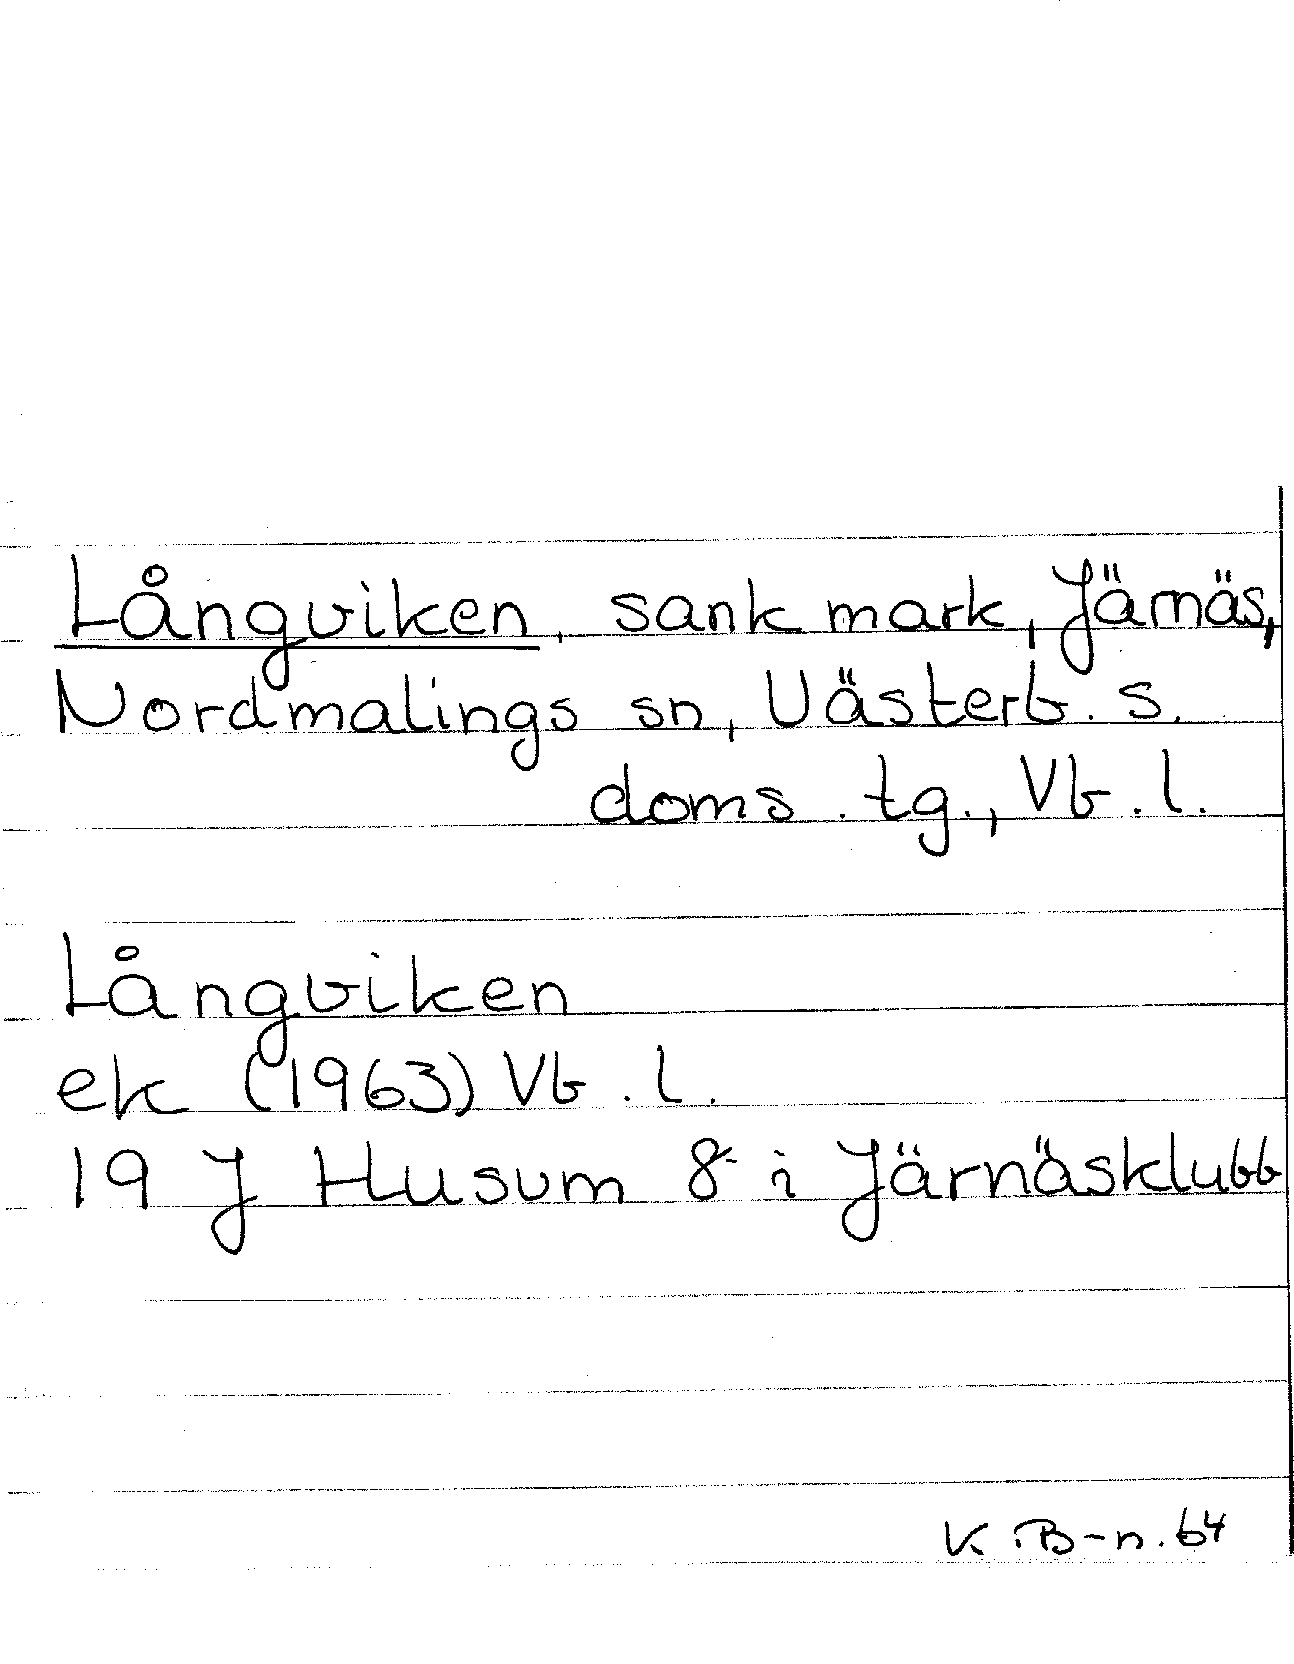 Långviken, sank mark, Järnäs,
Nordmalings sn, Västerb. s.
doms. tg., Vb. l.
Långviken
ek (1963) Vb. l.
19 J Husum 8 i Järnäsklubb
K. B-n. 64